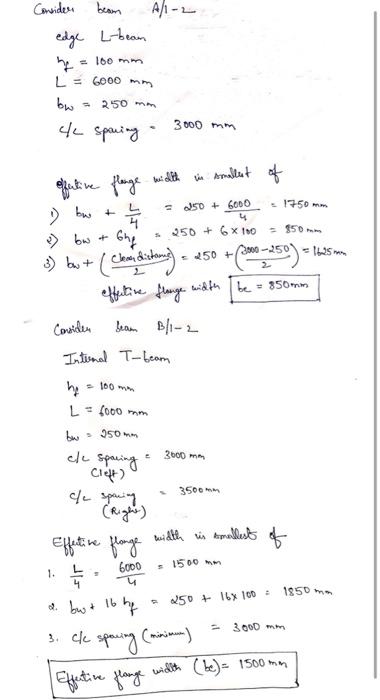 Consider beam A/1-2
edge L-beam
hf = 100 mm
L = 6000 mm
bw = 250 mm
c/c spacing = 3000 mm
effective flange width is smallest of
1) bw + L/4 = 250 + 6000/4 = 1750 mm
2) bw + 6hf = 250 + 6 x 100 = 850 mm
3) bw + (clear distance/2) = 250 + (3000-250/2) = 1625 mm
effective flange width be = 850mm
Consider beam B/1-2
Internal T-beam
hf = 100 mm
L = 6000 mm
bw = 250 mm
c/c spacing = 3000 mm
(left)
c/c spacing = 3500 mm
(Right)
Effective flange width is smallest of
1. L/4 = 6000/4 = 1500 mm
2. bw + 16 hf = 250 + 16 x 100 = 1850 mm
3. c/c spacing (minimum) = 3000 mm
Effective flange width (be) = 1500 mm